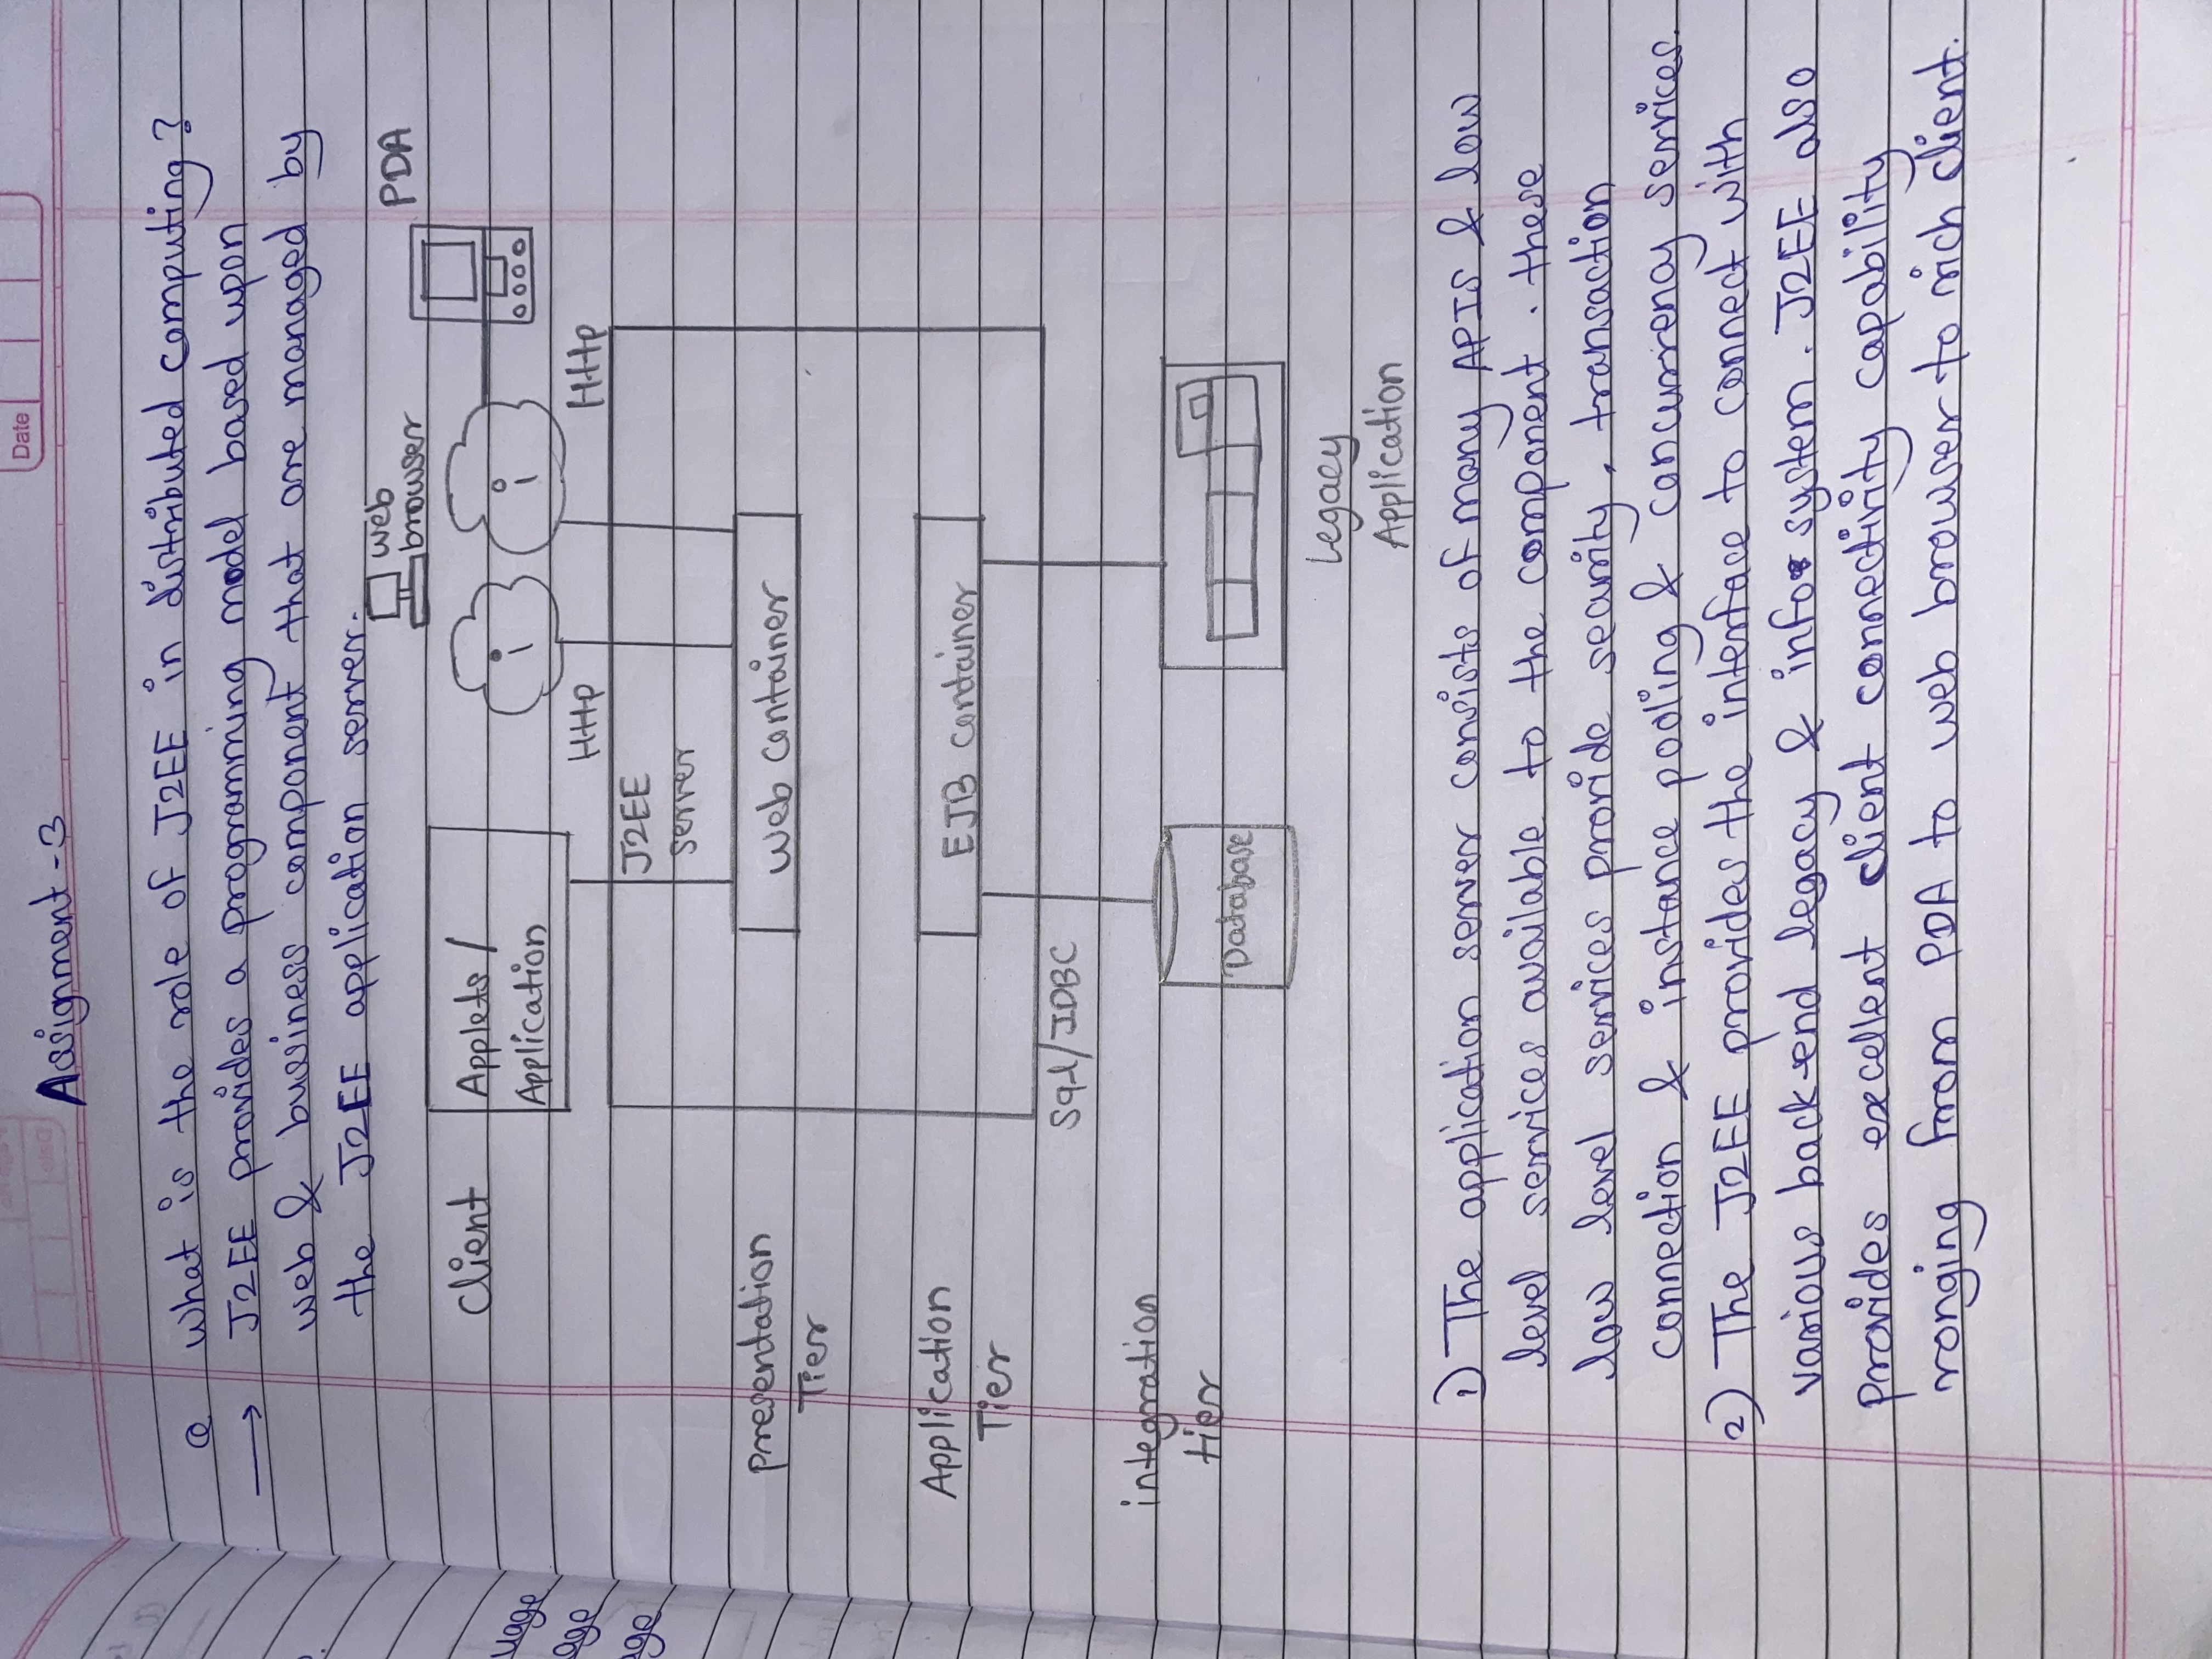 Date
Assignment - 3
Q What is the role of J2EE in distributed computing?
→ J2EE provides a programming model based upon
web & bussiness component that are managed by
the J2EE application server.
web
browser
PDA
Client
Applets /
Application
i
i
HTTP
HTTP
J2EE
server
Presentation
Tier
Web Container
Application
Tier
EJB Container
Sql/JDBC
integration
tier
Database
Legacy
Application
1) The application server consists of many APIS & low
level services available to the component. these
low level services provide security, transaction
connection & instance pooling & concurrency services.
2) The J2EE provides the interface to connect with
various back-end legacy & info system. J2EE also
provides excellent client connectivity capability
ronging from PDA to web browser to rich client.
uage
age
age